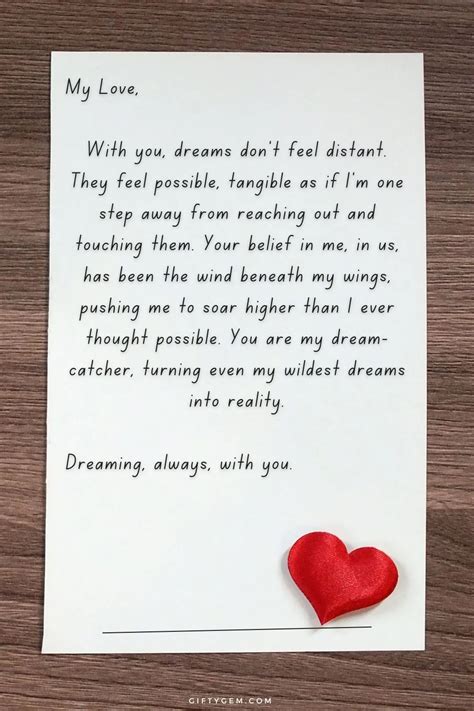 My Love,
With you, dreams don't feel distant.
They feel possible, tangible as if I'm one
step away from reaching out and
touching them. Your belief in me, in us,
has been the wind beneath my wings,
pushing me to soar higher than I ever
thought possible. You are my dream-
catcher, turning even my wildest dreams
into reality.
Dreaming, always, with you.
GIFTYGEM.COM